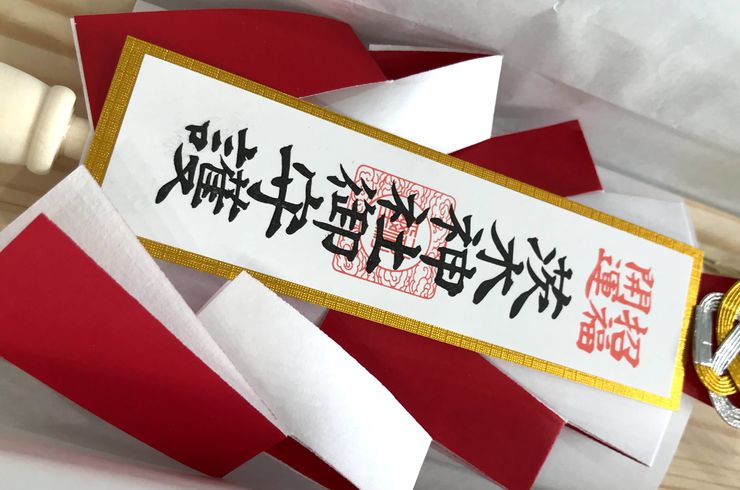 招福
開運
茨木神社御守護